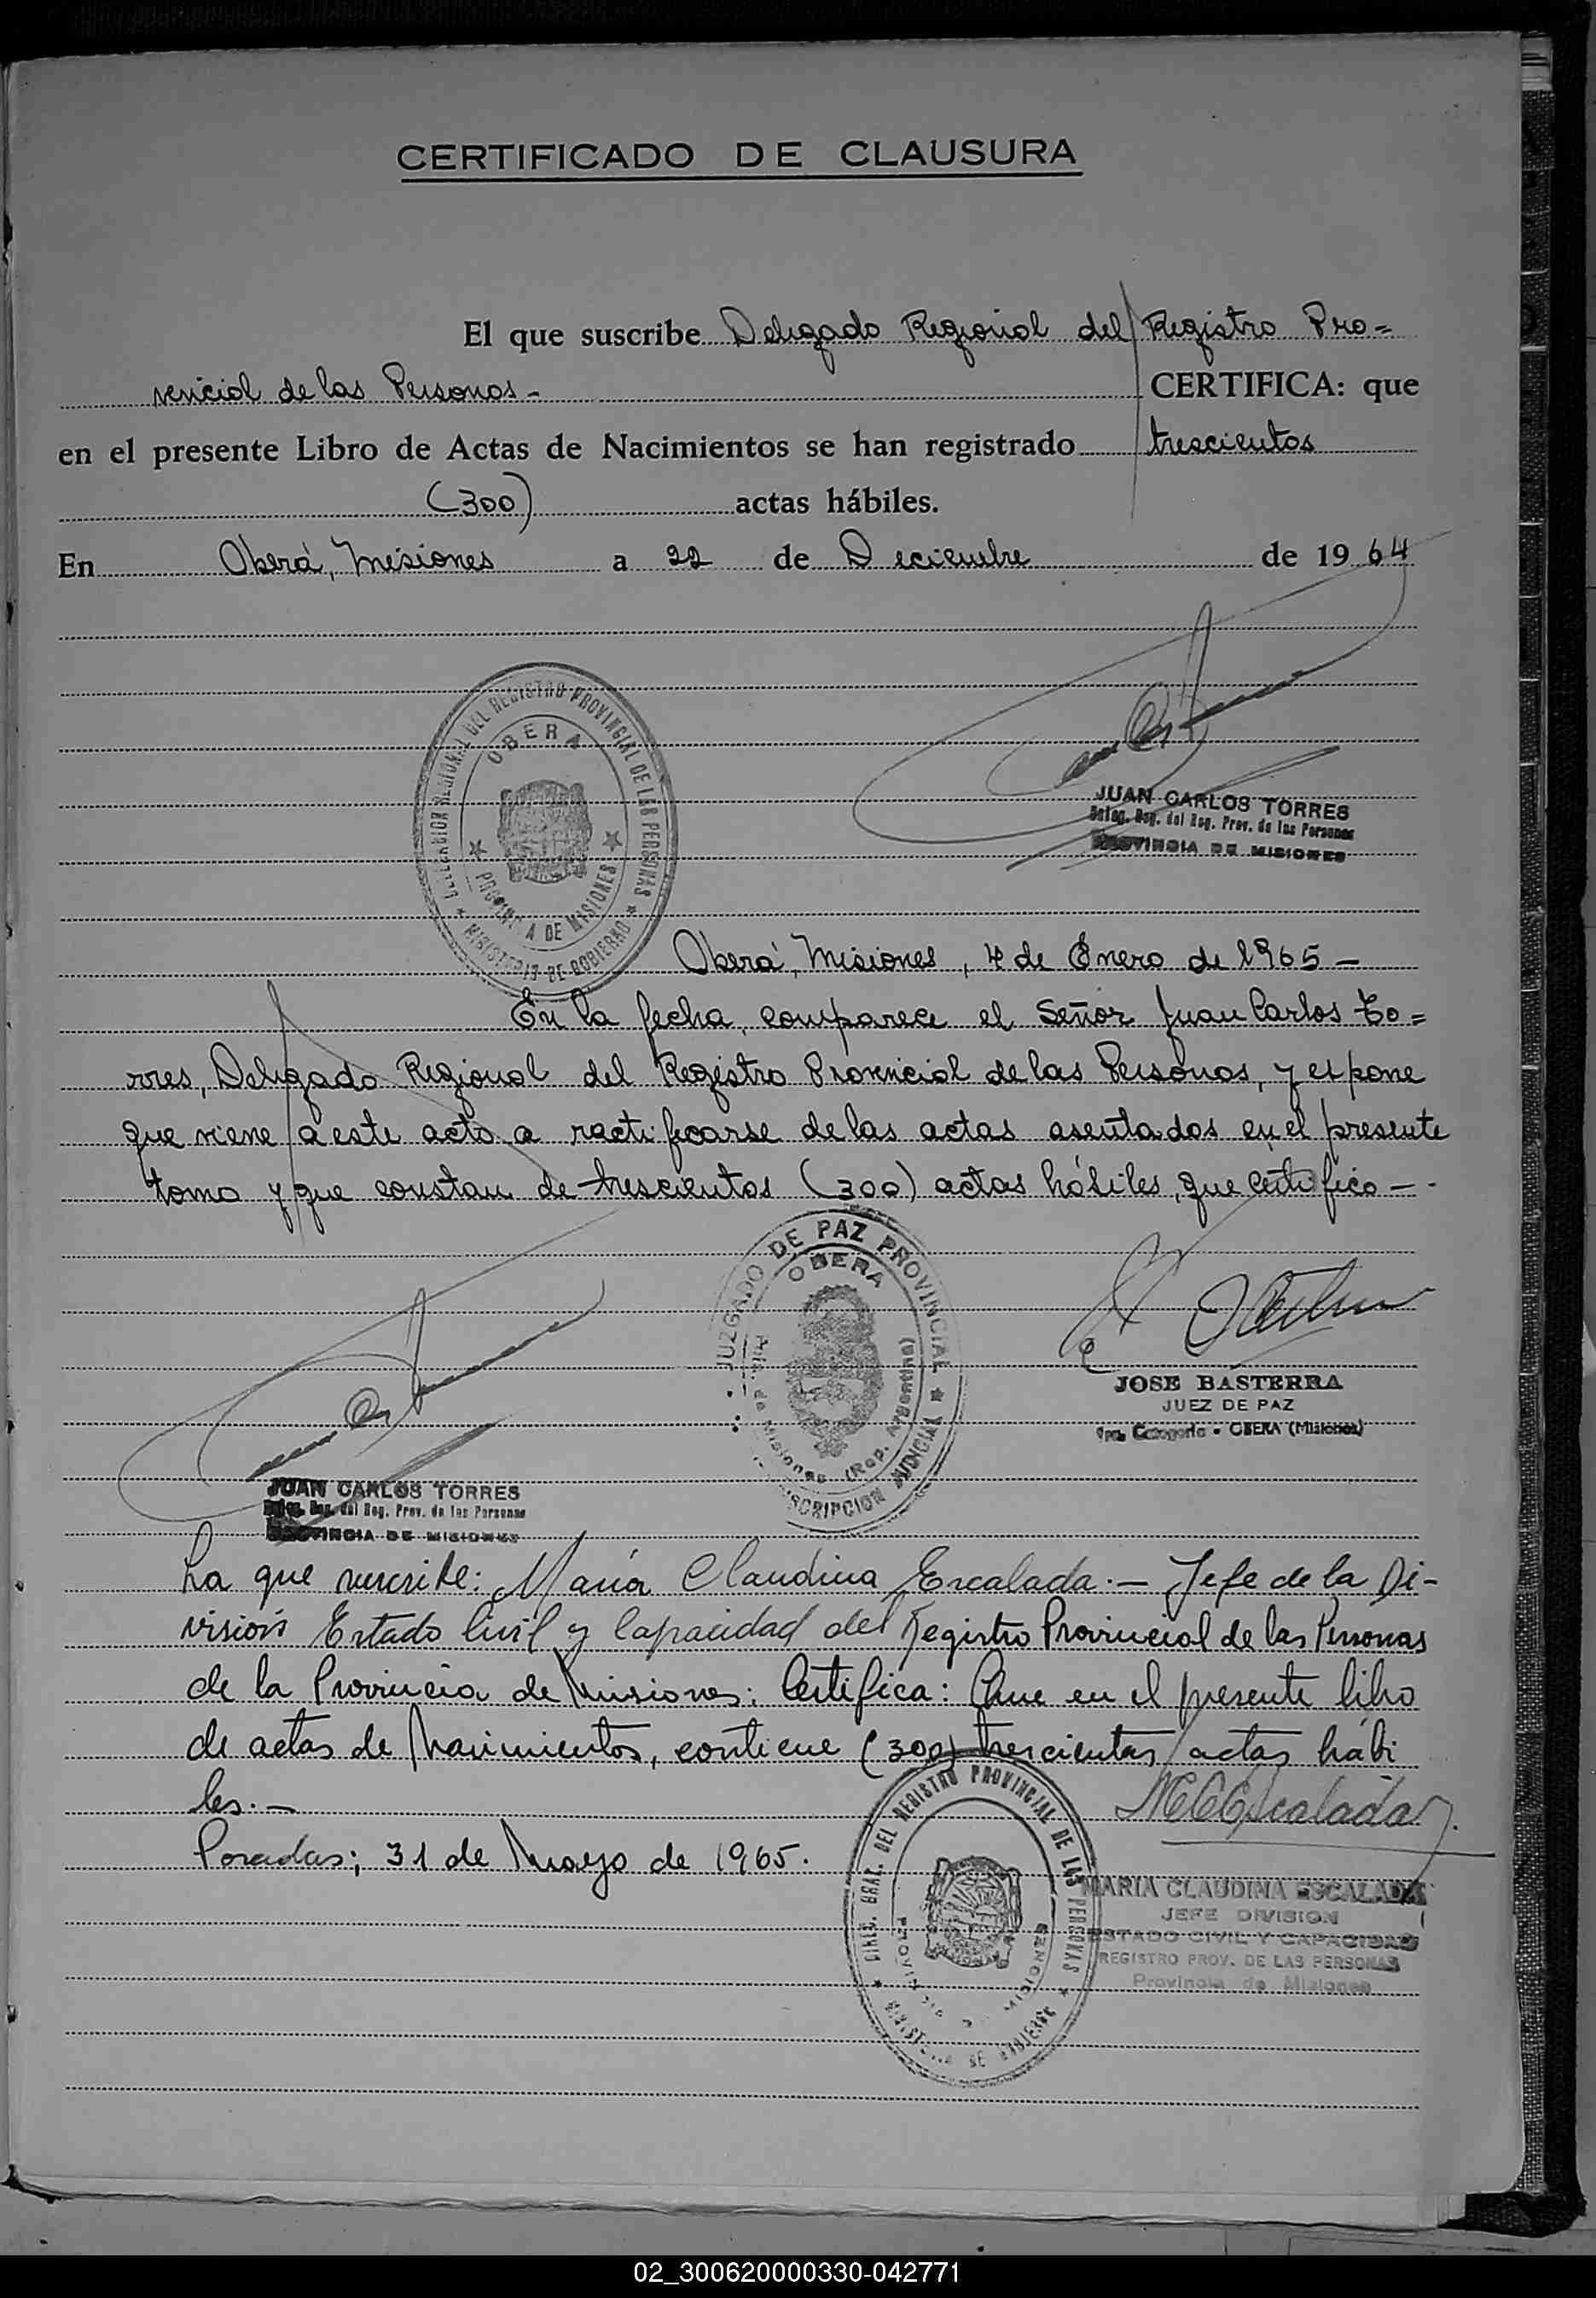 CERTIFICADO DE CLAUSURA
El que suscribe Delegado Regional del Registro Pro=
vincial de las Personas - CERTIFICA: que
en el presente Libro de Actas de Nacimientos se han registrado trescientos
(300) actas hábiles.
En Oberá, Misiones a 22 de Deciembre de 1964
DELEGACION REGIONAL DEL REGISTRO PROVINCIAL DE LAS PERSONAS
OBERA
PROVINCIA DE MISIONES
MINISTERIO DE GOBIERNO
JUAN CARLOS TORRES
Deleg. Reg. del Reg. Prov. de las Personas
PROVINCIA DE MISIONES
Oberá, Misiones, 4 de Enero de 1965 -
En la fecha, comparece el Señor Juan Carlos To=
rres, Delegado Regional del Registro Provincial de las Personas, y expone
que viene a este acto a ractificarse de las actas asentados en el presente
tomo y que constan de trescientos (300) actas hábiles, que certifico -
JUZGADO DE PAZ PROVINCIAL
OBERA
de Misiones (Rep. Argentina)
SCRIPCION JUDICIAL
JOSE BASTERRA
JUEZ DE PAZ
1ra. Categoria - OBERA (Misiones)
JUAN CARLOS TORRES
Deleg. Reg. del Reg. Prov. de las Personas
PROVINCIA DE MISIONES
La que suscribe: María Claudina Escalada.- Jefe de la Di-
visión Estado Civil y Capacidad del Registro Provincial de las Personas
de la Provincia de Misiones; Certifica: Que en el presente libro
de actas de Nacimientos, contiene (300) trescientas actas hábi
les.-
MCEscalada
Posadas; 31 de Mayo de 1965.
DIREC. GRAL. DEL REGISTRO PROVINCIAL DE LAS PERSONAS
MINISTERIO DE GOBIERNO
MARIA CLAUDINA ESCALADA
JEFE DIVISION
ESTADO CIVIL Y CAPACIDAD
REGISTRO PROV. DE LAS PERSONAS
Provincia de Misiones
02_300620000330-042771